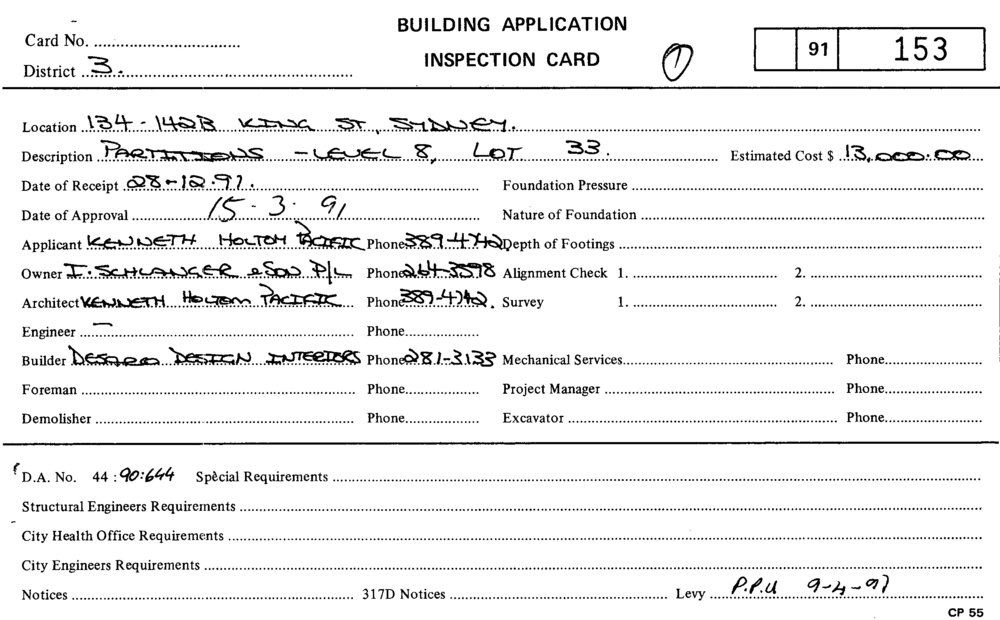 BUILDING APPLICATION
INSPECTION CARD
Card No. 
District 3.
1
91 153
Location 134-142B KING ST, SYDNEY.
Description PARTITIONS - LEVEL 8, LOT 33. Estimated Cost $ 13,000.00
Date of Receipt 28-12-91. Foundation Pressure
Date of Approval 15-3.91 Nature of Foundation
Applicant KENNETH HOLTOM PACIFIC Phone 389-4742 Depth of Footings
Owner I. SCHLANGER & SON P/L Phone 264-3598 Alignment Check 1. 2.
Architect KENNETH HOLTOM PACIFIC Phone 389-4742. Survey 1. 2.
Engineer — Phone
Builder DESIGN INTERIORS Phone 281-3133 Mechanical Services Phone
Foreman Phone Project Manager Phone
Demolisher Phone Excavator Phone
D.A. No. 44 : 90:644 Special Requirements
Structural Engineers Requirements
City Health Office Requirements
City Engineers Requirements
Notices 317D Notices Levy P.P.U 9-4-91
CP 55